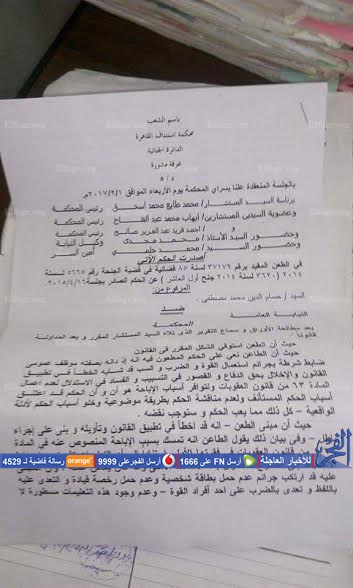 باسم الشعب
محكمة استئناف القاهرة
الدائرة الجنائية
غرفة مشورة
بالجلسة المنعقدة علنا بسراي المحكمة يوم الأربعاء الموافق ٢٠١٧/٢/١م
برئاسة السيد المستشار/ محمد طارق محمد اسحق رئيس المحكمة
وعضوية السيدين المستشارين/ ايهاب محمد عبد الفتاح رئيس المحكمة
و / احمد فريد عبد العزيز صالح رئيس المحكمة
وحضور السيد الأستاذ/ محمد مجدي وكيل النيابة
وحضور السيد/ محمد حلمي أمين السر
أصدرت الحكم الآتي
في الطعن المقيد برقم ٣٧١٧٩ لسنة ٨٥ قضائية في قضية الجنحة رقم
المرفوع من
السيد / حسام الدين محمد مصطفى .
ضد
النيابة العامة
المحكمة
بعد مطالعة الأوراق و سماع التقرير الذي تلاه السيد المستشار المقرر و بعد المداولة
قانونا .
حيث أن الطعن استوفي الشكل المقرر في القانون .
حيث أن الطاعن نعى على الحكم المطعون فيه إنه إذ دانه بصفته موظف عمومي
ضابط شرطة بجرائم استعمال القوة و الضرب و السب قد شابه الخطأ في تطبيق
القانون والإخلال بحق الدفاع و القصور في التسبيب و الفساد في الاستدلال لعدم اعمال
المادة ٦٣ من قانون العقوبات وتتوافر أسباب الإباحة هو أن و أن الحكم قد اعتنق
أسباب الحكم المستأنف ولعدم مناقشة الحكم بطريقة موضوعية وخلو أسباب الحكم لأدلة
الواقعية – كل ذلك مما يعيب الحكم و ستوجب نقضه .
حيث أن مبنى الطعن – انه قد اخطأ في تطبيق القانون وتأويله و بني على إجراء
باطل – وفي بيان ذلك يقول الطاعن إنه تمسك بسبب الإباحة المنصوص عنه في المادة
الفجر
للأخبار العاجلة
أرسل FN على 1666
أرسل الفجر على 9999
orange
رسالة فاضية لـ 4529
عليه قد ارتكب جرائم عدم حمل بطاقة شخصية وعدم حمل رخصة قيادة و التعدي عليه
باللفظ و تعدى بالضرب على احد أفراد القوة – وعدم وجود هذه التعليمات مسطورة لا
Elfagr.org
Elfagr.org
Elfagr.org